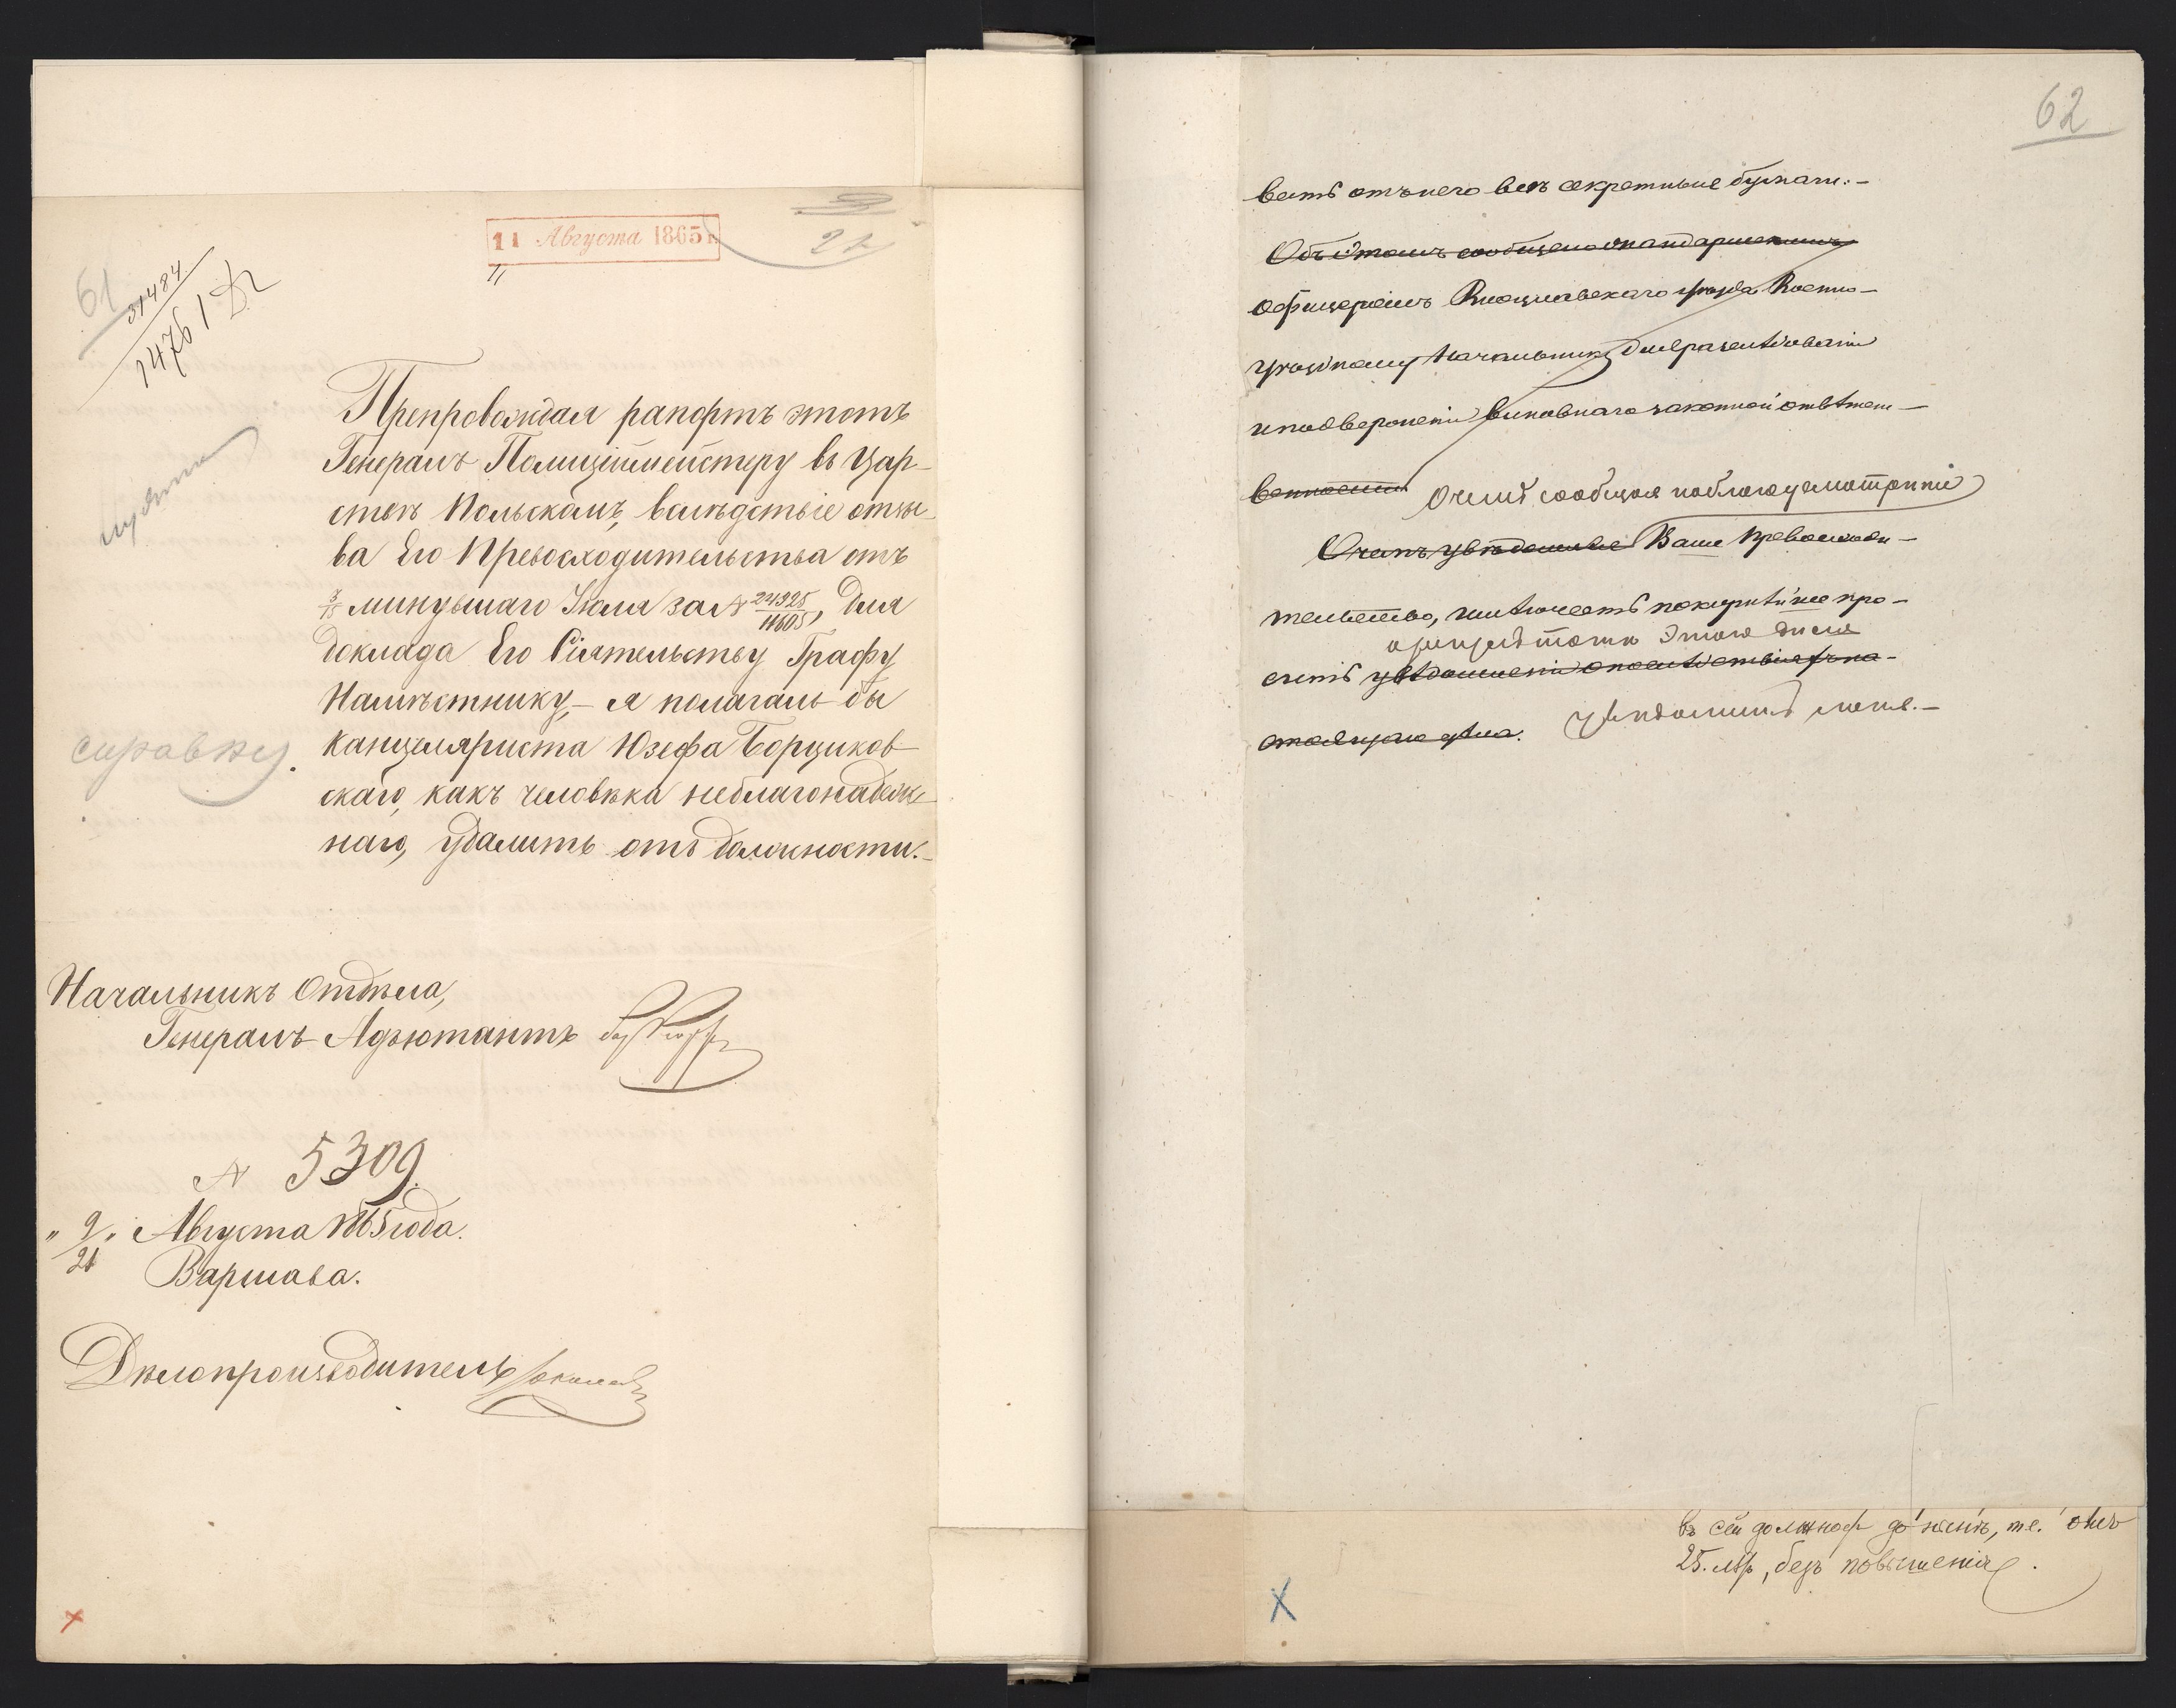 11 Августа 1865 г.
11
61
31484
62
Препровождая рапортъ этотъ
Генералъ Полиціймейстеру въ Цар-
ствѣ Польскомъ, вслѣдствіе отзы-
ва Его Превосходительства отъ
3/15 минувшаго Іюля за № 24325/11605, для
доклада Его Сіятельству Графу
Намѣстнику, – я полагалъ бы
канцеляриста Юзефа Борциков-
скаго, какъ человѣка неблагонадеж-
наго, удалить отъ должности. –
справку.
Начальникъ Отдѣла,
Генералъ-Адъютантъ
№ 5309.
„9/21„ Августа 1865 года.
Варшава.
Дѣлопроизводитель
вать отъ него всѣ секретныя бумаги: –
Объ этомъ сообщено жандармскимъ
офицеромъ уѣзда Военно-
уѣздному Начальнику для разслѣдованія
и подверженія виновнаго законной отвѣтст-
венности О чемъ сообщая на благоусмотрѣніе
О чемъ увѣдомляя Ваше Превосходи-
тельство, имѣю честь покорнѣйше про-
этого дѣла
сить увѣдомленія о послѣдствіяхъ на-
стоящаго дѣла. увѣдомить меня. –
въ сей должнос
25. лѣтъ, безъ повышенія.